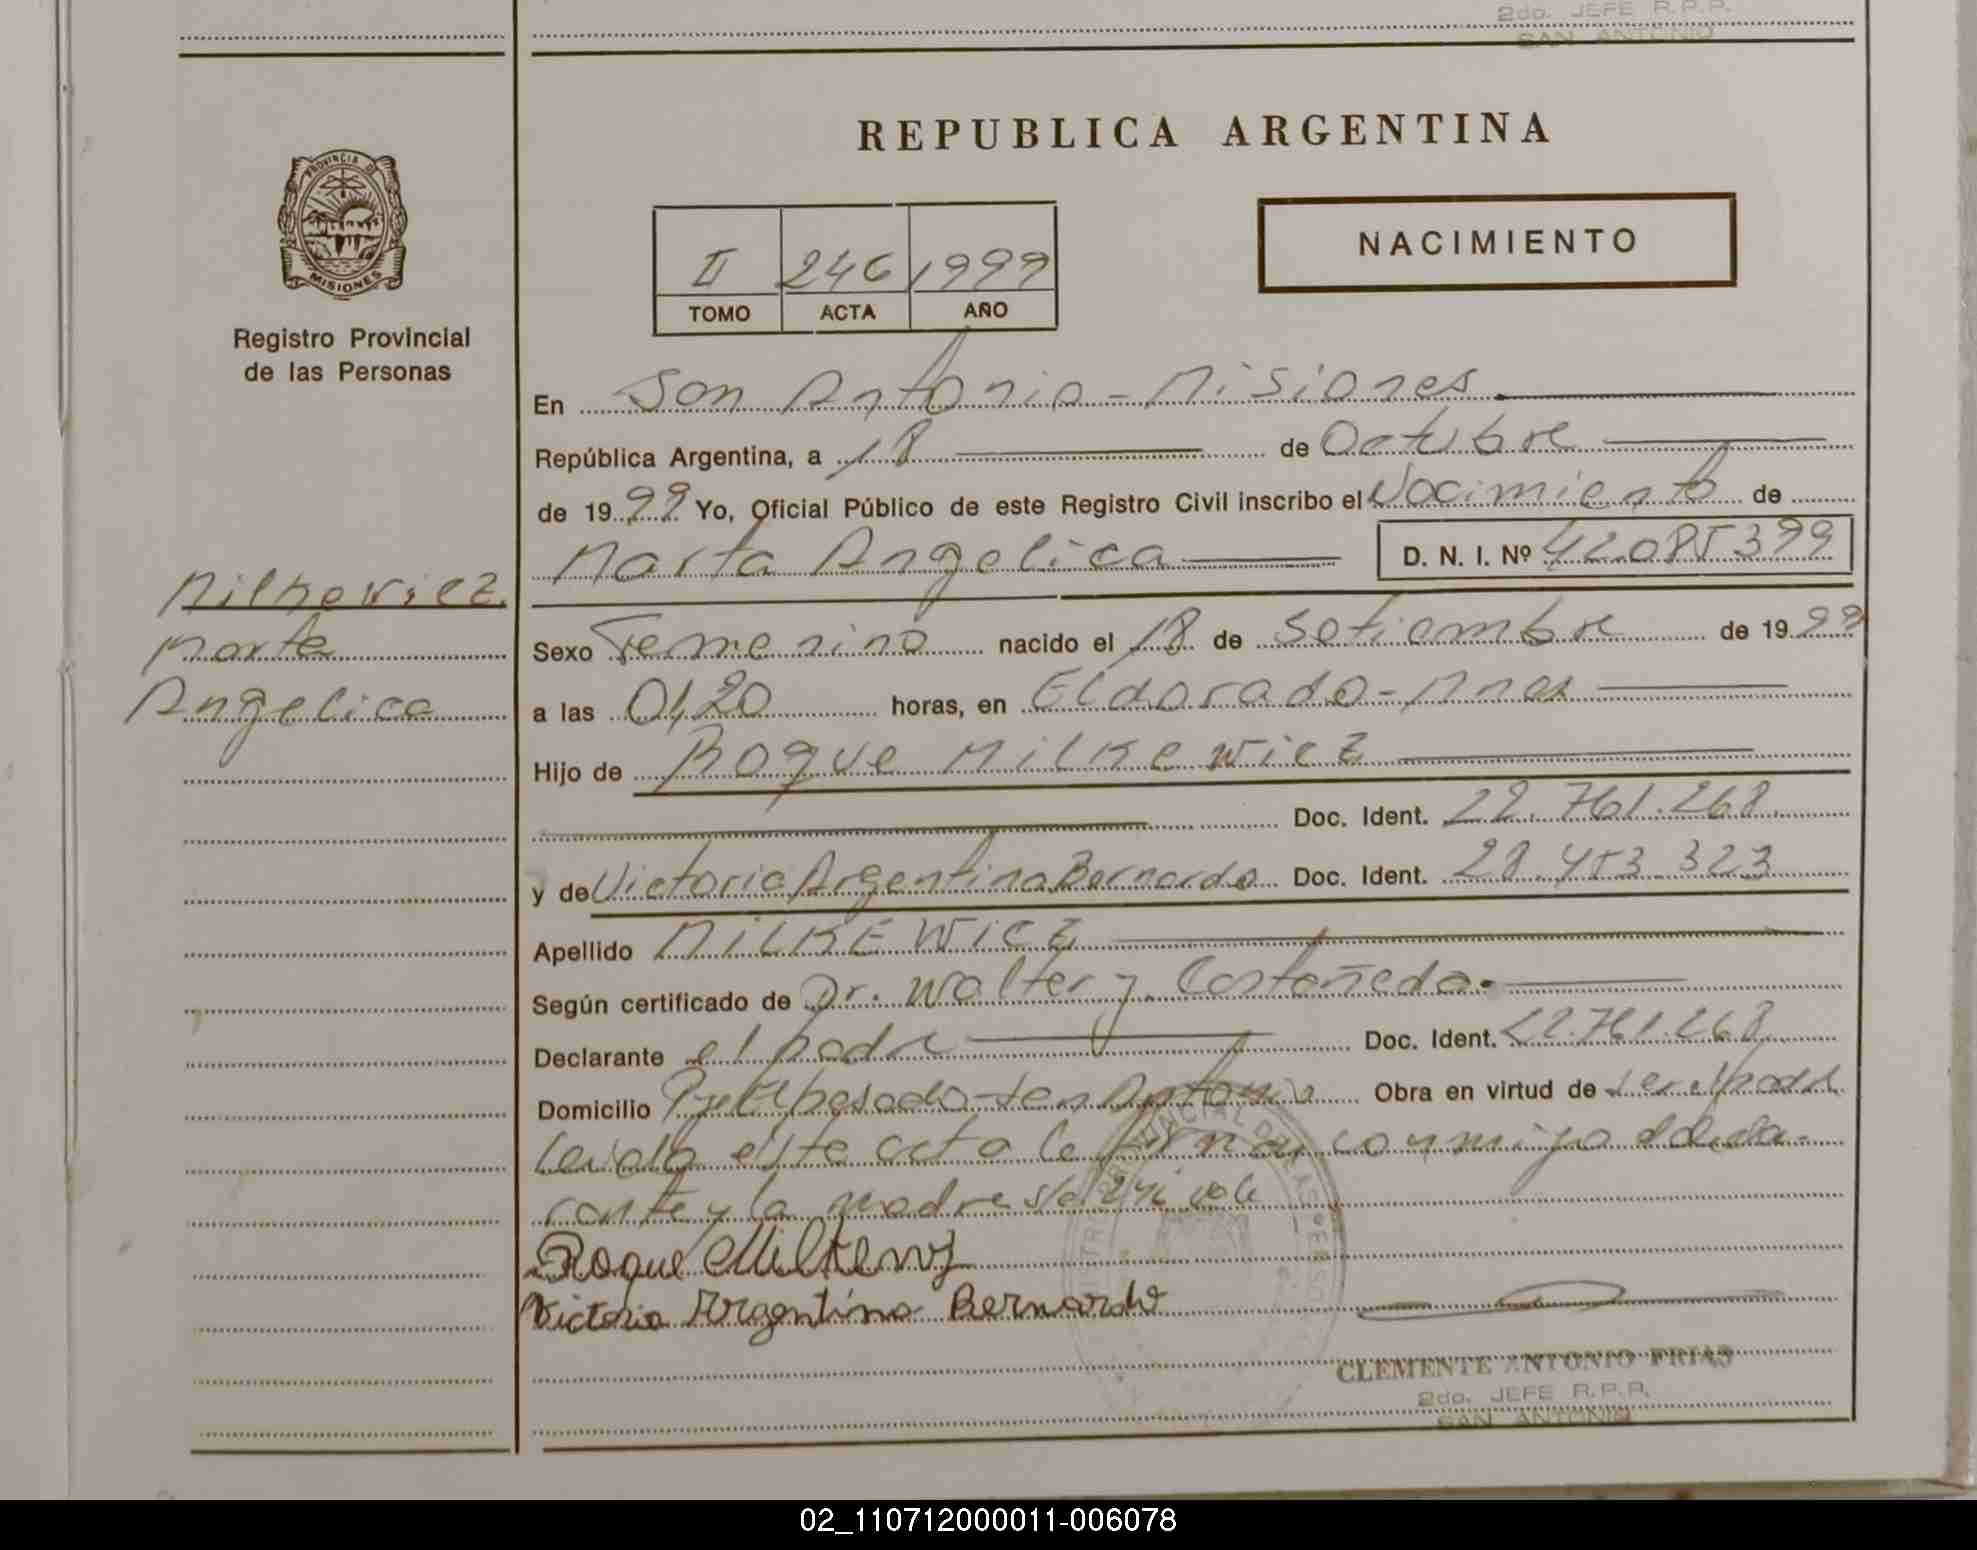 2do. JEFE R.P.P.
SAN ANTONIO
REPUBLICA ARGENTINA
PROVINCIA DE
MISIONES
Registro Provincial
de las Personas
II 246 1999
TOMO ACTA AÑO
NACIMIENTO
En San Antonio - Misiones
República Argentina, a 18 de Octubre
de 1999 Yo, Oficial Público de este Registro Civil inscribo el Nacimiento de
Marta Angelica D. N. I. Nº 42.085399
Milkewicz
Marta
Angelica
Sexo Femenino nacido el 18 de Setiembre de 1999
a las 01,20 horas, en Eldorado - Mnes
Hijo de Roque Milkewicz
Doc. Ident. 22.761.268
y de Victoria Argentina Bernardo Doc. Ident. 28.453.323
Apellido MILKEWICZ
Según certificado de Dr. Walter J. Castañeda.
Declarante el padre Doc. Ident. 22.761.268
Domicilio San Antonio Obra en virtud de ser el padre
Leida este acta la firman conmigo el decla-
rante y la madre vale
Roque Milkewicz
Victoria Argentina Bernardo
CLEMENTE ANTONIO FRIAS
2do. JEFE R.P.P.
SAN ANTONIO
02_110712000011-006078